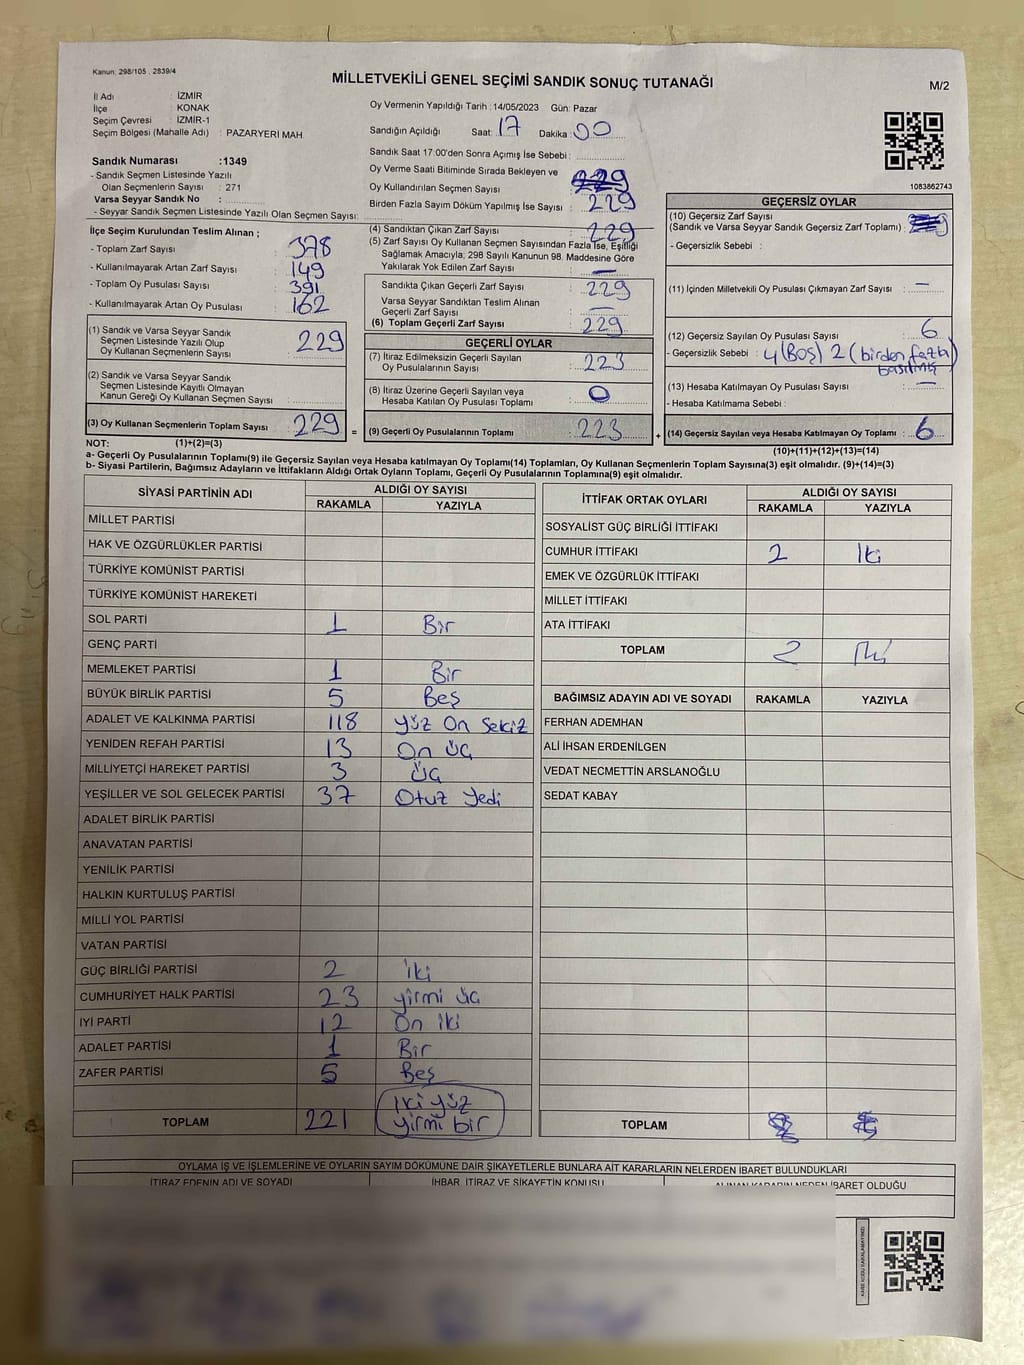 Kanun: 298/105 , 2839/4
MİLLETVEKİLİ GENEL SEÇİMİ SANDIK SONUÇ TUTANAĞI
M/2
İl Adı : İZMİR
İlçe : KONAK
Seçim Çevresi : İZMİR-1
Seçim Bölgesi (Mahalle Adı) : PAZARYERİ MAH.
Sandık Numarası :1349
- Sandık Seçmen Listesinde Yazılı
Olan Seçmenlerin Sayısı : 271
Varsa Seyyar Sandık No :
- Seyyar Sandık Seçmen Listesinde Yazılı Olan Seçmen Sayısı:
Oy Vermenin Yapıldığı Tarih : 14/05/2023 Gün: Pazar
Sandığın Açıldığı Saat: 17 Dakika: 00
Sandık Saat 17:00'den Sonra Açımış İse Sebebi :
Oy Verme Saati Bitiminde Sırada Bekleyen ve
Oy Kullandırılan Seçmen Sayısı :
Birden Fazla Sayım Döküm Yapılmış İse Sayısı : 229
1083862743
İlçe Seçim Kurulundan Teslim Alınan ;
- Toplam Zarf Sayısı : 378
- Kullanılmayarak Artan Zarf Sayısı : 149
- Toplam Oy Pusulası Sayısı : 391
- Kullanılmayarak Artan Oy Pusulası : 162
(1) Sandık ve Varsa Seyyar Sandık
Seçmen Listesinde Yazılı Olup
Oy Kullanan Seçmenlerin Sayısı : 229
(2) Sandık ve Varsa Seyyar Sandık
Seçmen Listesinde Kayıtlı Olmayan
Kanun Gereği Oy Kullanan Seçmen Sayısı :
(3) Oy Kullanan Seçmenlerin Toplam Sayısı : 229 =
(4) Sandıktan Çıkan Zarf Sayısı : 229
(5) Zarf Sayısı Oy Kullanan Seçmen Sayısından Fazla İse, Eşitliği
Sağlamak Amacıyla; 298 Sayılı Kanunun 98. Maddesine Göre
Yakılarak Yok Edilen Zarf Sayısı : —
Sandıkta Çıkan Geçerli Zarf Sayısı : 229
Varsa Seyyar Sandıktan Teslim Alınan
Geçerli Zarf Sayısı : —
(6) Toplam Geçerli Zarf Sayısı : 229
GEÇERLİ OYLAR
(7) İtiraz Edilmeksizin Geçerli Sayılan
Oy Pusulalarının Sayısı : 223
(8) İtiraz Üzerine Geçerli Sayılan veya
Hesaba Katılan Oy Pusulası Toplamı : 0
(9) Geçerli Oy Pusulalarının Toplamı : 223 +
GEÇERSİZ OYLAR
(10) Geçersiz Zarf Sayısı
(Sandık ve Varsa Seyyar Sandık Geçersiz Zarf Toplamı) :
- Geçersizlik Sebebi :
(11) İçinden Milletvekili Oy Pusulası Çıkmayan Zarf Sayısı : —
(12) Geçersiz Sayılan Oy Pusulası Sayısı : 6
- Geçersizlik Sebebi : 4 (Boş) 2 (birden fazla
basılmış)
(13) Hesaba Katılmayan Oy Pusulası Sayısı : —
- Hesaba Katılmama Sebebi :
(14) Geçersiz Sayılan veya Hesaba Katılmayan Oy Toplamı : 6
NOT: (1)+(2)=(3) (10)+(11)+(12)+(13)=(14)
a- Geçerli Oy Pusulalarının Toplamı(9) ile Geçersiz Sayılan veya Hesaba katılmayan Oy Toplamı(14) Toplamları, Oy Kullanan Seçmenlerin Toplam Sayısına(3) eşit olmalıdır. (9)+(14)=(3)
b- Siyasi Partilerin, Bağımsız Adayların ve İttifakların Aldığı Ortak Oyların Toplamı, Geçerli Oy Pusulalarının Toplamına(9) eşit olmalıdır.
SİYASİ PARTİNİN ADI ALDIĞI OY SAYISI
RAKAMLA YAZIYLA
MİLLET PARTİSİ
HAK VE ÖZGÜRLÜKLER PARTİSİ
TÜRKİYE KOMÜNİST PARTİSİ
TÜRKİYE KOMÜNİST HAREKETİ
SOL PARTİ 1 Bir
GENÇ PARTİ
MEMLEKET PARTİSİ 1 Bir
BÜYÜK BİRLİK PARTİSİ 5 Beş
ADALET VE KALKINMA PARTİSİ 118 yüz On Sekiz
YENİDEN REFAH PARTİSİ 13 On üç
MİLLİYETÇİ HAREKET PARTİSİ 3 üç
YEŞİLLER VE SOL GELECEK PARTİSİ 37 Otuz Yedi
ADALET BİRLİK PARTİSİ
ANAVATAN PARTİSİ
YENİLİK PARTİSİ
HALKIN KURTULUŞ PARTİSİ
MİLLİ YOL PARTİSİ
VATAN PARTİSİ
GÜÇ BİRLİĞİ PARTİSİ 2 iki
CUMHURİYET HALK PARTİSİ 23 yirmi üç
İYİ PARTİ 12 On iki
ADALET PARTİSİ 1 Bir
ZAFER PARTİSİ 5 Beş
TOPLAM 221 iki yüz
yirmi bir
İTTİFAK ORTAK OYLARI ALDIĞI OY SAYISI
RAKAMLA YAZIYLA
SOSYALİST GÜÇ BİRLİĞİ İTTİFAKI
CUMHUR İTTİFAKI 2 İki
EMEK VE ÖZGÜRLÜK İTTİFAKI
MİLLET İTTİFAKI
ATA İTTİFAKI
TOPLAM 2 İki
BAĞIMSIZ ADAYIN ADI VE SOYADI RAKAMLA YAZIYLA
FERHAN ADEMHAN
ALİ İHSAN ERDENİLGEN
VEDAT NECMETTİN ARSLANOĞLU
SEDAT KABAY
TOPLAM
OYLAMA İŞ VE İŞLEMLERİNE VE OYLARIN SAYIM DÖKÜMÜNE DAİR ŞİKAYETLERLE BUNLARA AİT KARARLARIN NELERDEN İBARET BULUNDUKLARI
İTİRAZ EDENİN ADI VE SOYADI İHBAR, İTİRAZ VE ŞİKAYETİN KONUSU ALINAN KARARIN NEDEN İBARET OLDUĞU